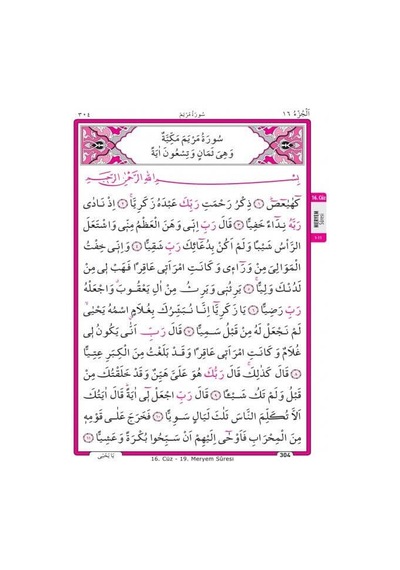 ٣٠٤ سُورَةُ مَرْيَمَ اَلْجُزْءُ ١٦
سُورَةُ مَرْيَمَ مَكِّيَّةٌ
وَهِىَ ثَمَانٍ وَتِسْعُونَ اٰيَةً
بِسْمِ اللّٰهِ الرَّحْمٰنِ الرَّحِيمِ
16. Cüz
MERYEM
Sûresi
كٓهٰيٰعٓصٓ ﴿١﴾ ذِكْرُ رَحْمَتِ رَبِّكَ عَبْدَهُ زَكَرِيَّا ﴿٢﴾ اِذْ نَادٰى
رَبَّهُ نِدَٓاءً خَفِيًّا ﴿٣﴾ قَالَ رَبِّ اِنّٖى وَهَنَ الْعَظْمُ مِنّٖى وَاشْتَعَلَ
الرَّأْسُ شَيْبًا وَلَمْ اَكُنْ بِدُعَٓائِكَ رَبِّ شَقِيًّا ﴿٤﴾ وَاِنّٖى خِفْتُ
الْمَوَالِىَ مِنْ وَرَٓاءٖى وَكَانَتِ امْرَاَتٖى عَاقِرًا فَهَبْ لٖى مِنْ
لَدُنْكَ وَلِيًّا ﴿٥﴾ يَرِثُنٖى وَيَرِثُ مِنْ اٰلِ يَعْقُوبَ وَاجْعَلْهُ
رَبِّ رَضِيًّا ﴿٦﴾ يَا زَكَرِيَّٓا اِنَّا نُبَشِّرُكَ بِغُلَامٍ اسْمُهُ يَحْيٰى
لَمْ نَجْعَلْ لَهُ مِنْ قَبْلُ سَمِيًّا ﴿٧﴾ قَالَ رَبِّ اَنّٰى يَكُونُ لٖى
غُلَامٌ وَكَانَتِ امْرَاَتٖى عَاقِرًا وَقَدْ بَلَغْتُ مِنَ الْكِبَرِ عِتِيًّا
﴿٨﴾ قَالَ كَذٰلِكَ قَالَ رَبُّكَ هُوَ عَلَىَّ هَيِّنٌ وَقَدْ خَلَقْتُكَ مِنْ
قَبْلُ وَلَمْ تَكُ شَيْـًٔا ﴿٩﴾ قَالَ رَبِّ اجْعَلْ لٖٓى اٰيَةً قَالَ اٰيَتُكَ
اَلَّا تُكَلِّمَ النَّاسَ ثَلٰثَ لَيَالٍ سَوِيًّا ﴿١٠﴾ فَخَرَجَ عَلٰى قَوْمِهٖ
مِنَ الْمِحْرَابِ فَاَوْحٰٓى اِلَيْهِمْ اَنْ سَبِّحُوا بُكْرَةً وَعَشِيًّا ﴿١١﴾
يَا يَحْيٰى 16. Cüz - 19. Meryem Sûresi 304